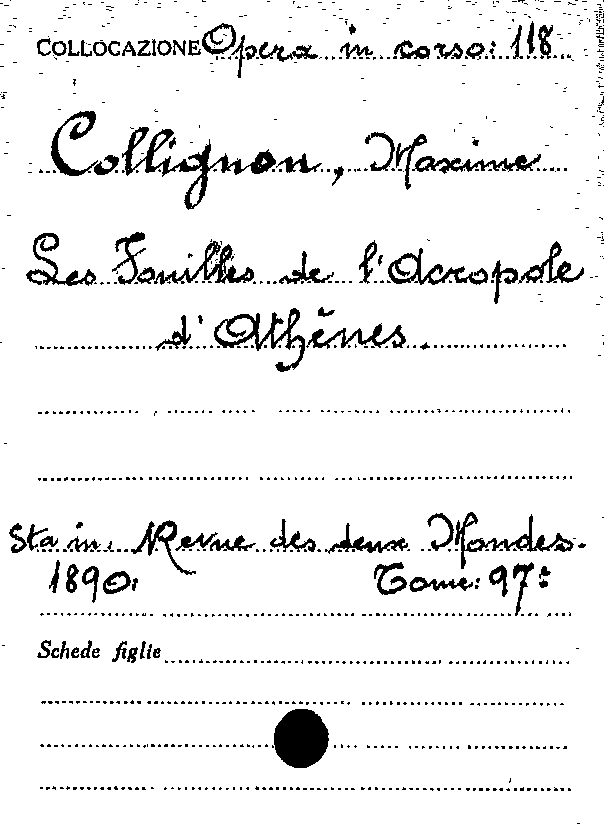 COLLOCAZIONE Opera in corso: 118
Collignon, Maxime
Les Fouilles de l'Acropole
d'Athênes.
Sta in: Revue des deux Mondes.
1890: Tome: 97:
Schede figlie